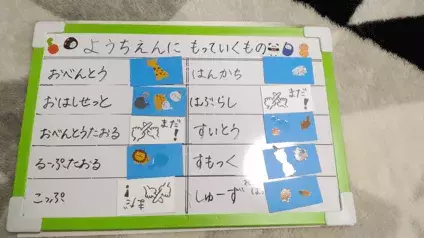 ようちえんに もっていくもの
おべんとう
はんかち
おはしせっと
はぶらし まだ!
おべんとうたおる まだ!
すいとう
るーぷたおる
すもっく
こっぷ まだ!
しゅーず